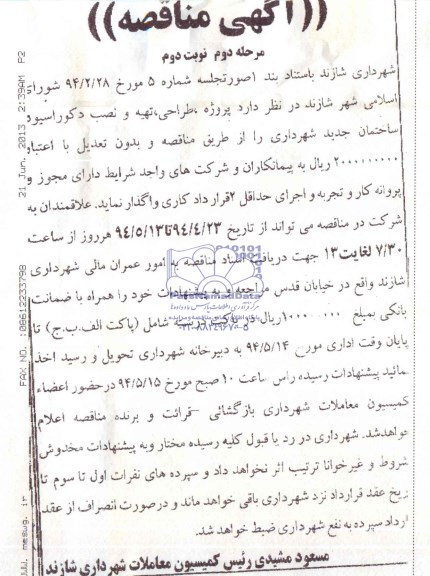 ((آگهی مناقصه))
مرحله دوم نوبت دوم
شهرداری شازند باستناد بند ۱صورتجلسه شماره ۵ مورخ ۹۴/۲/۲۸ شورای
اسلامی شهر شازند در نظر دارد پروژه ،طراحی،تهیه و نصب دکوراسیون
ساختمان جدید شهرداری را از طریق مناقصه و بدون تعدیل با اعتبار
۲۰۰۰۰۰۰۰۰۰ ریال به پیمانکاران و شرکت های واجد شرایط دارای مجوز و
پروانه کار و تجربه و اجرای حداقل ۲قرار داد کاری واگذار نماید. علاقمندان به
شرکت در مناقصه می تواند از تاریخ ۹۴/۴/۲۳تا۹۴/۵/۱۳ هرروز از ساعت
۷/۳۰ لغایت۱۳ جهت دریافت اسناد مناقصه به امور عمران مالی شهرداری
شازند واقع در خیابان قدس مراجعه و پیشنهادات خود را همراه با ضمانت
بانکی بمبلغ ریال در پاکت دربسته شامل (پاکت الف.ب.ج) تا
پایان وقت اداری مورخ ۹۴/۵/۱۴ به دبیرخانه شهرداری تحویل و رسید اخذ
نمائید پیشنهادات رسیده راس ساعت ۱۰ صبح مورخ ۹۴/۵/۱۵ درحضور اعضاء
کمیسیون معاملات شهرداری بازگشائی قرائت و برنده مناقصه اعلام
خواهدشد. شهرداری در رد یا قبول کلیه رسیده مختار وبه پیشنهادات مخدوش
شروط و غیرخوانا ترتیب اثر نخواهد داد و سپرده های نفرات اول تا سوم تا
ریخ عقد قرارداد نزد شهرداری باقی خواهد ماند و درصورت انصراف از عقد
ارداد سپرده به نفع شهرداری ضبط خواهد شد.
مسعود مشیدی رئیس کمیسیون معاملات شهرداری شازند
21 Jun. 2013 2:39AM P2
FAX NO. :08612233798
ParsNamadData